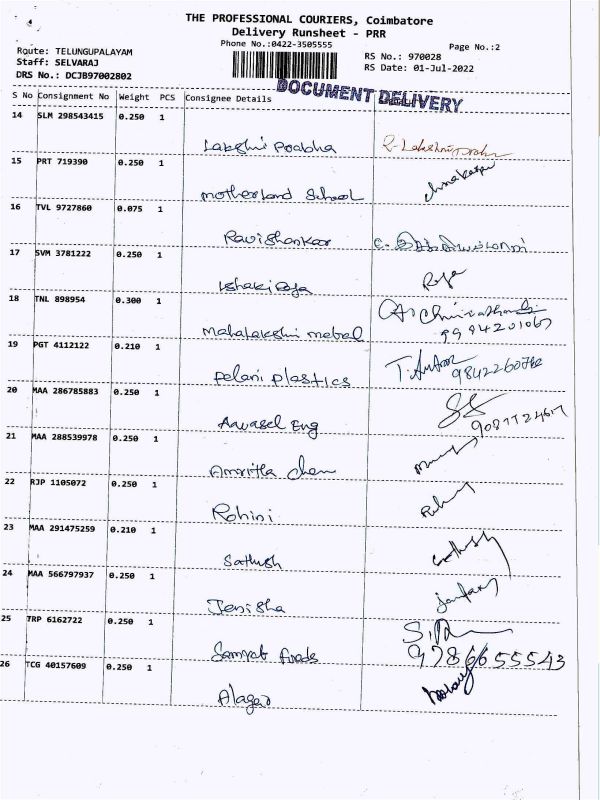 THE PROFESSIONAL COURIERS, Coimbatore
Delivery Runsheet - PRR
Phone No.:0422-3505555
Page No.:2
Route: TELUNGUPALAYAM
Staff: SELVARAJ
DRS No.: DCJB97002802
RS No.: 970028
RS Date: 01-Jul-2022
DOCUMENT DELIVERY
S No Consignment No Weight PCS Consignee Details
14 SLM 298543415 0.250 1
Lakshmi Prabha R. Lakshmi
15 PRT 719390 0.250 1
Motherland School
16 TVL 9727860 0.075 1
Ravishankar
17 SVM 3781222 0.250 1
Raja
18 TNL 898954 0.300 1
Mahalakshmi metal 9994201067
19 PGT 4112122 0.210 1
Pelani plastics
20 MAA 286785883 0.250 1
Aavasel Eng
21 MAA 288539978 0.250 1
Amritha Chem
22 RJP 1105072 0.250 1
Rohini
23 MAA 291475259 0.210 1
Sathish
24 MAA 566797937 0.250 1
Jenisha
25 TRP 6162722 0.250 1
Foods 9786655543
26 TCG 40157609 0.250 1
Alagar